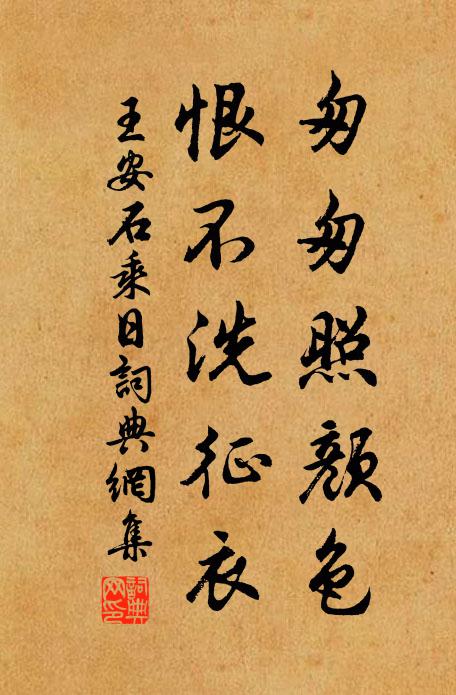 匆匆照顏色
恨不洗征衣
王安石乘日詞典網集
詞典网印